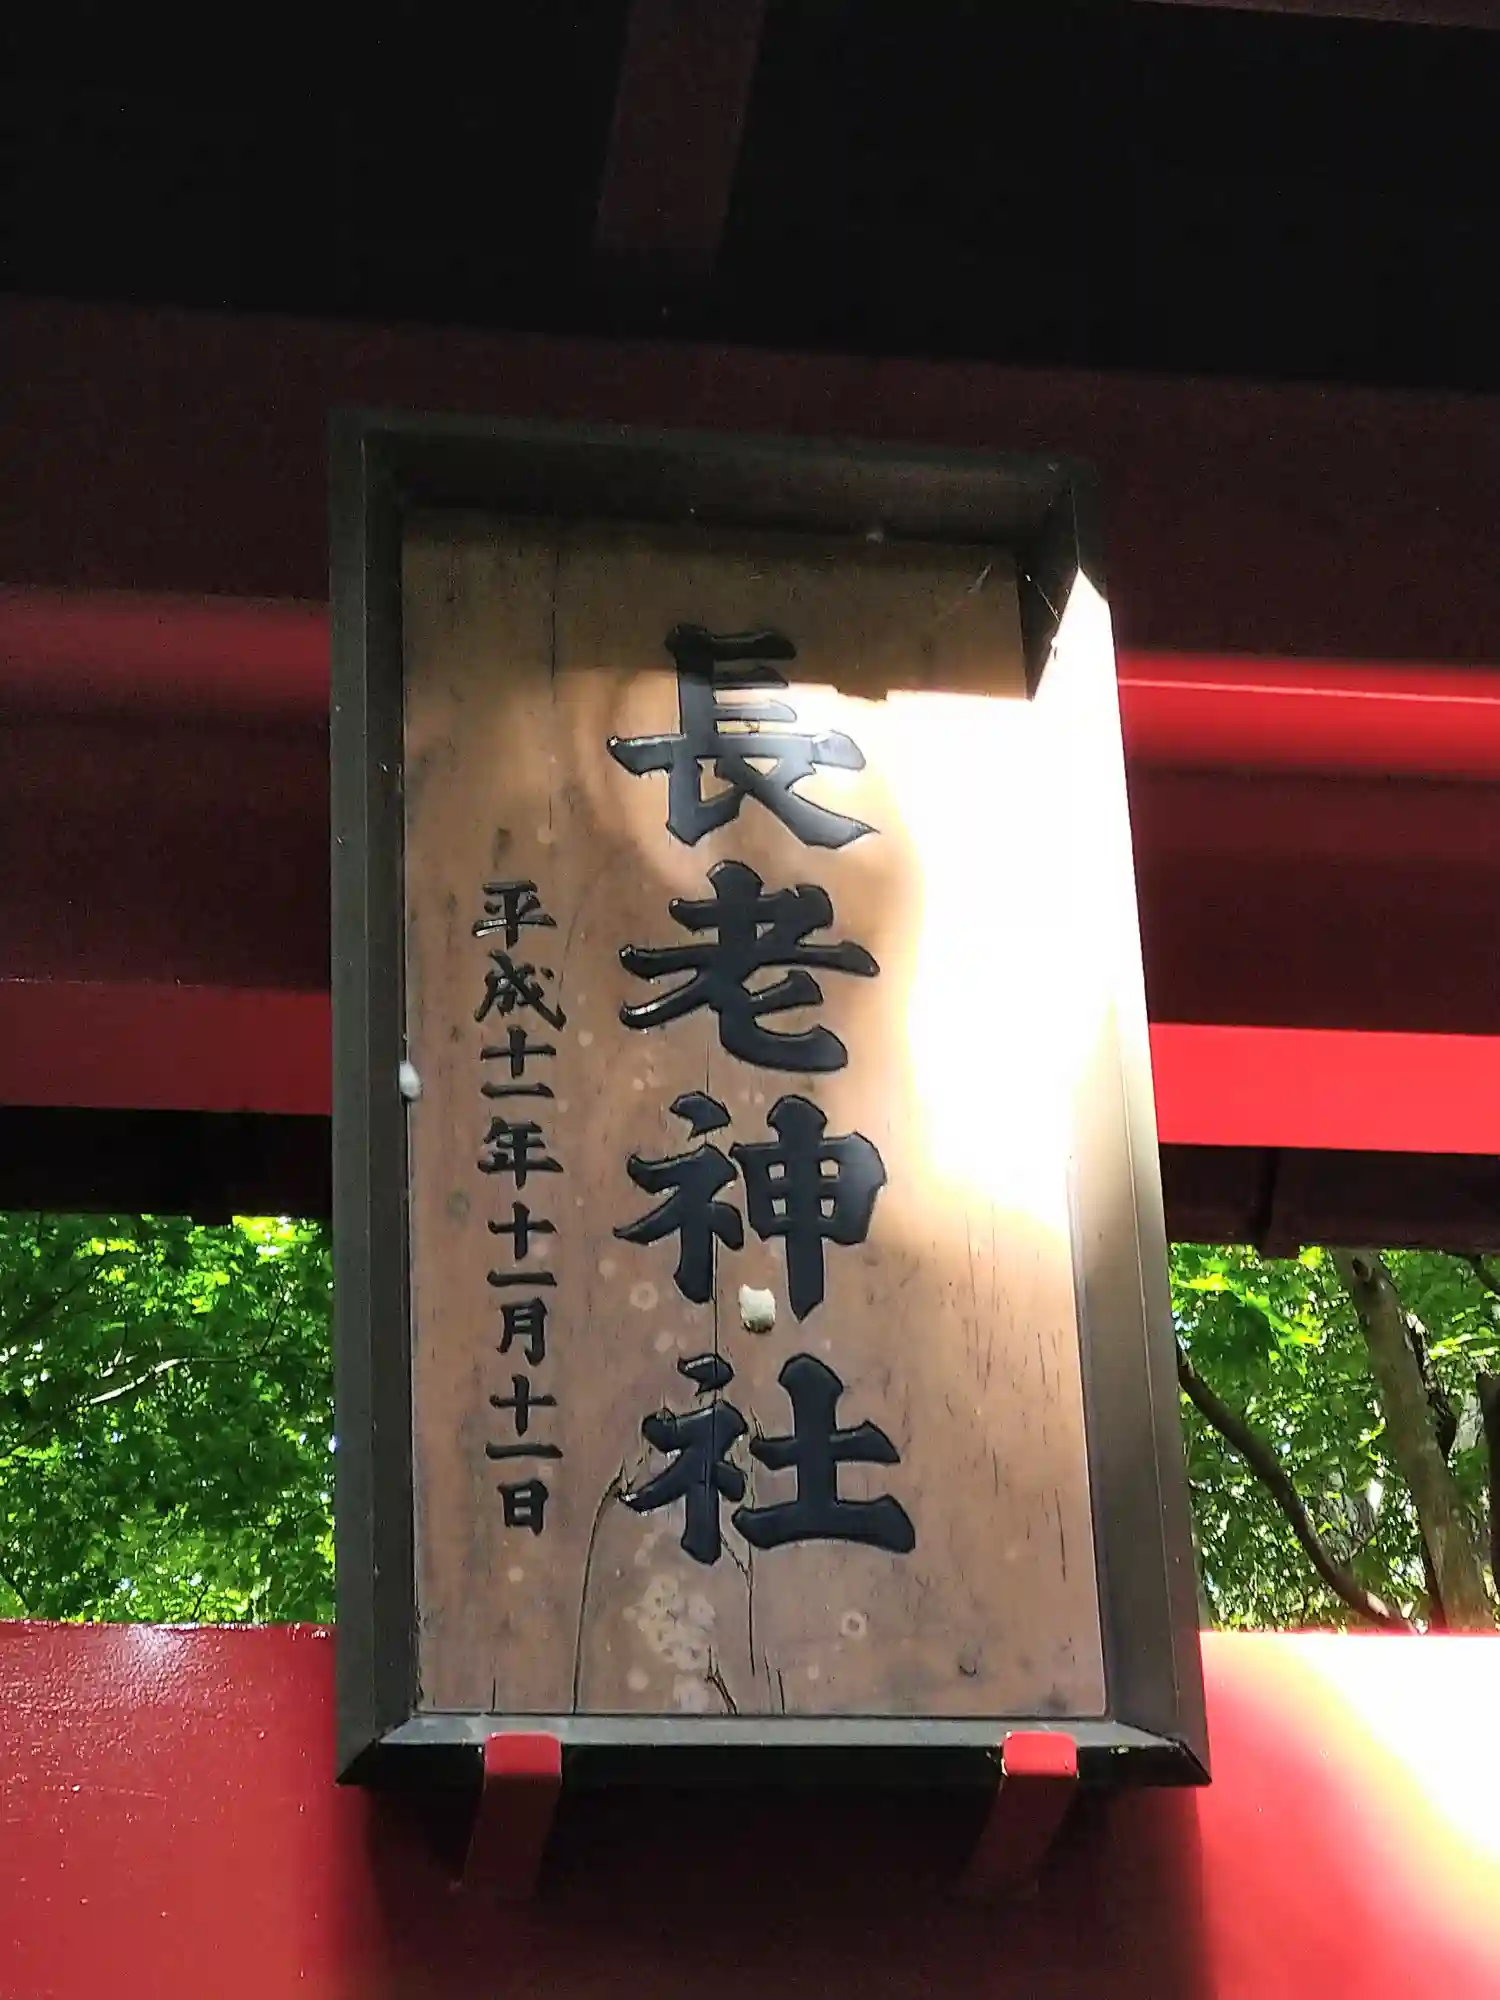 長老神社
平成十一年十一月十一日